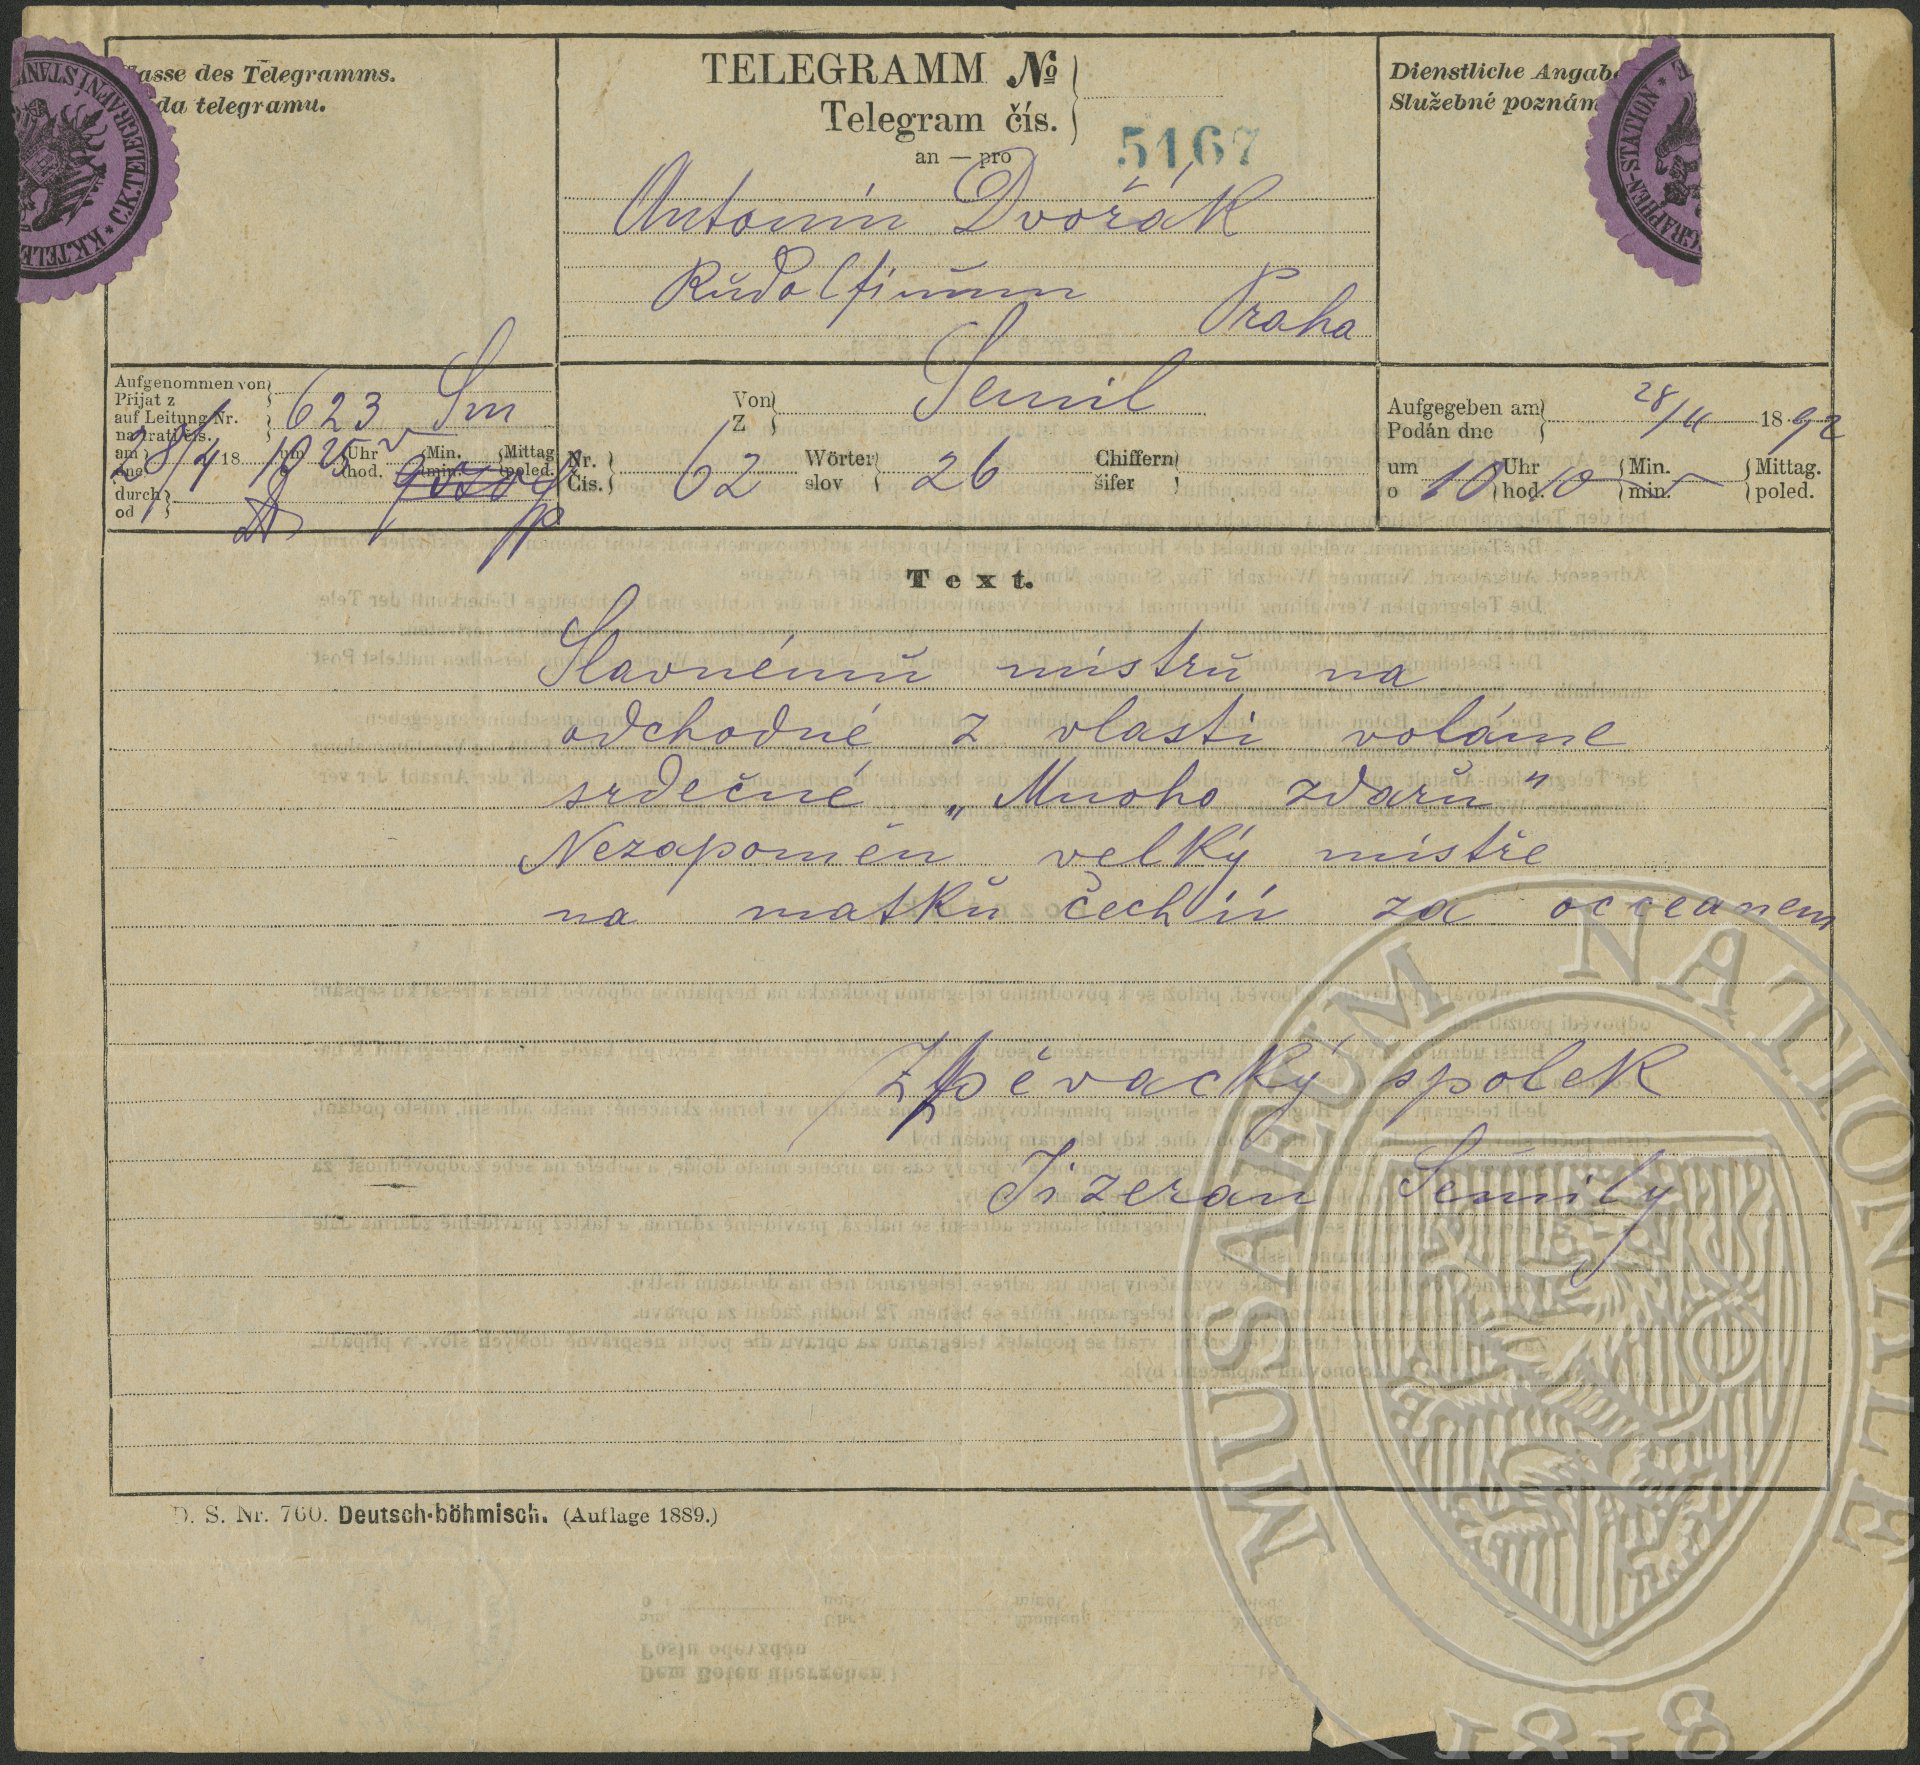 Classe des Telegramms.
da telegramu.
TELEGRAMM №
Telegram čís.
5167
an — pro
Antonín Dvořák
Rudolfinum
Praha
Dienstliche Angab
Služebné poznám
C.K.TELEGRAFNÍ STAN
K.K.TELE
GRAPHEN-STATION
Aufgenommen von
Přijat z
auf Leitung Nr.
na trati čís.
623 Sm
am
dne
28/4 18
um
o
10 25
Uhr
hod.
Min.
min.
Mittag
poled.
durch
od
Von
Z
Semil
Nr.
Čís.
62
Wörter
slov
26
Chiffern
šifer
Aufgegeben am
Podán dne
28/4 18 92
um
o
10
Uhr
hod.
10
Min.
min.
Mittag.
poled.
Text.
Slavnému mistru na
odchodné z vlasti voláme
srdečné „Mnoho zdaru"
Nezapomeň velký mistře
na matku Čechii za occeanem
Zpěvacký spolek
Jizeran Semily
D. S. Nr. 760. Deutsch-böhmisch. (Auflage 1889.)
MUSAEUM NATIONALE
1818